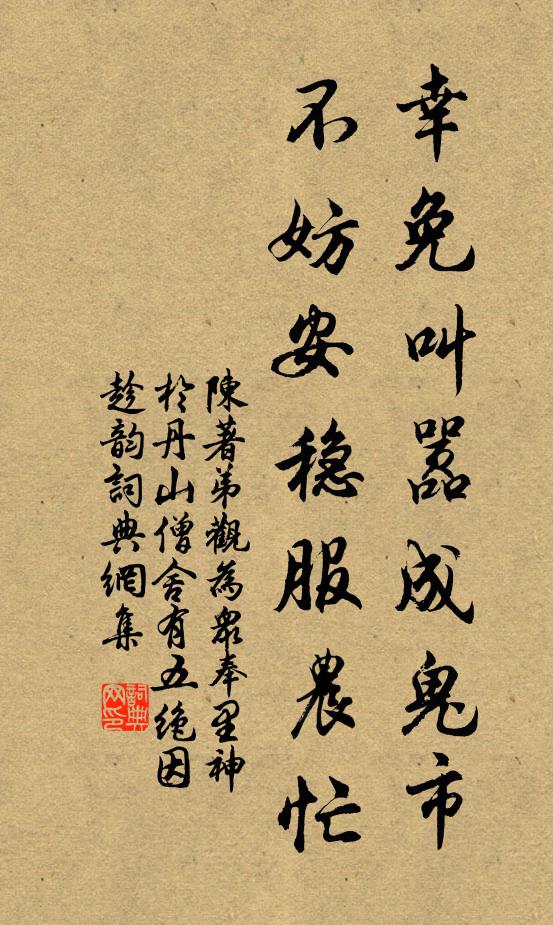 幸免叫嚣成鬼市
不妨安稳服農忙
陳著弟觀為衆奉里神
於丹山僧舍有五絶因
趁韵詞典網集
詞典
网印